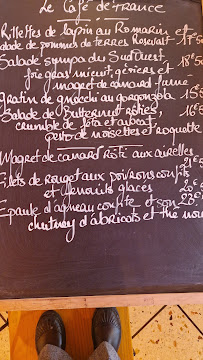 Le Café de France
Rillettes de lapin au Romarin et
salade de pommes de terres Roseval 17€50
Salade sympa du Sud Ouest 18€50
foie gras mi cuit, gésiers et
magret de canard fumé
gratin de gnocchi au gorgonzola
Salade de Butternut rôties,
crumble de féta et
pesto de noisettes et roquette
Magret de canard Rôti aux airelles
Filets de Rouget aux poivrons confits
et fenouils glacés
Epaule d'agneau confite et son 23€
chutney d'abricots et thé